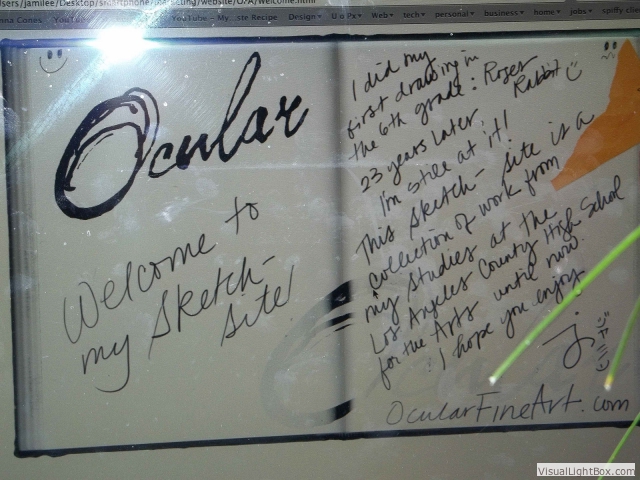 sers/jamilee/Desktop/smartphone/marketing/website/O/A/welcome.html
YouTube - My...ste Recipe Design U o Ps Web tech personal business home jobs spiffy clie
Ocular
Welcome to
my Sketch-
site!
I did my
first drawing in
the 6th grade: Roger
Rabbit
23 years later,
I'm still at it!
This sketch- site is a
collection of work from
my studies at the
Los Angeles County High School
for the Arts until now.
I hope you enjoy!
j
OcularFineArt.com
VisualLightBox.com